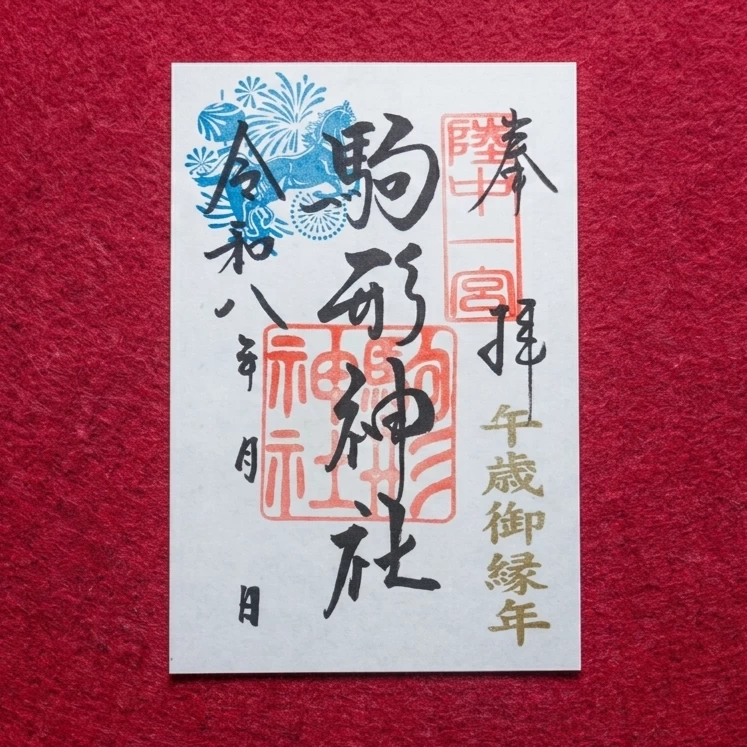 奉拝
陸中一宮
午歳御縁年
駒形神社
駒形神社
令和八年 月 日